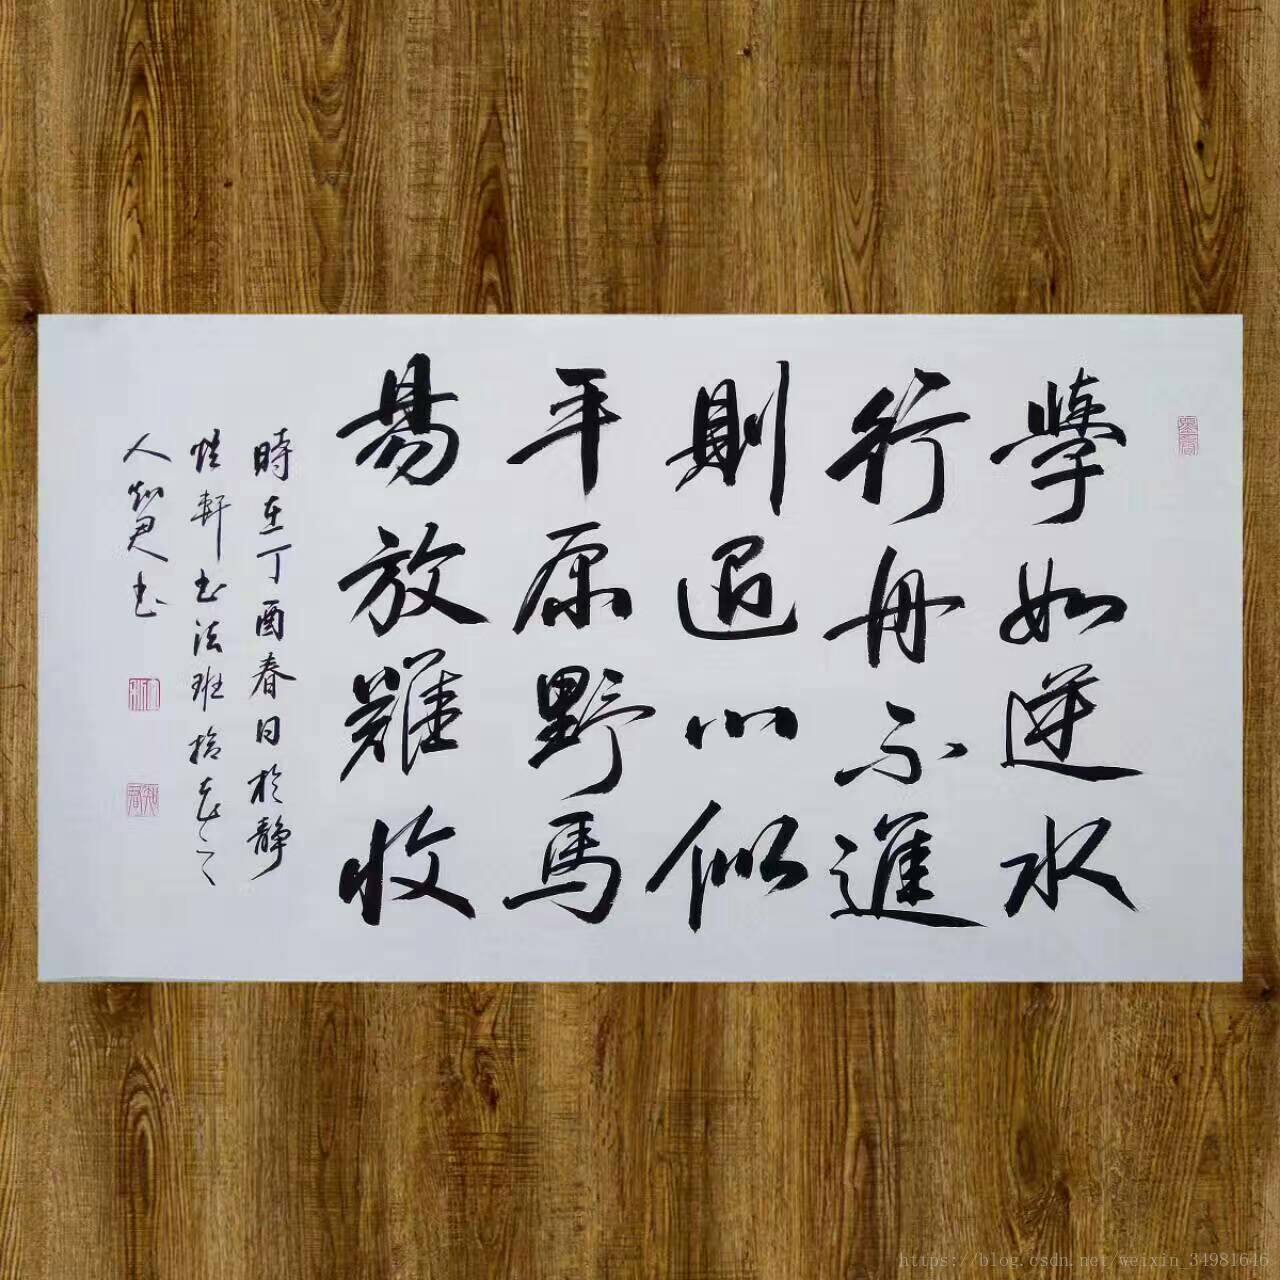 學如逆水
行舟不進
則退心似
平原野馬
易放難收
時在丁酉春日於靜
惟軒書法班
人知君書
https://blog.csdn.net/weixin_34981646